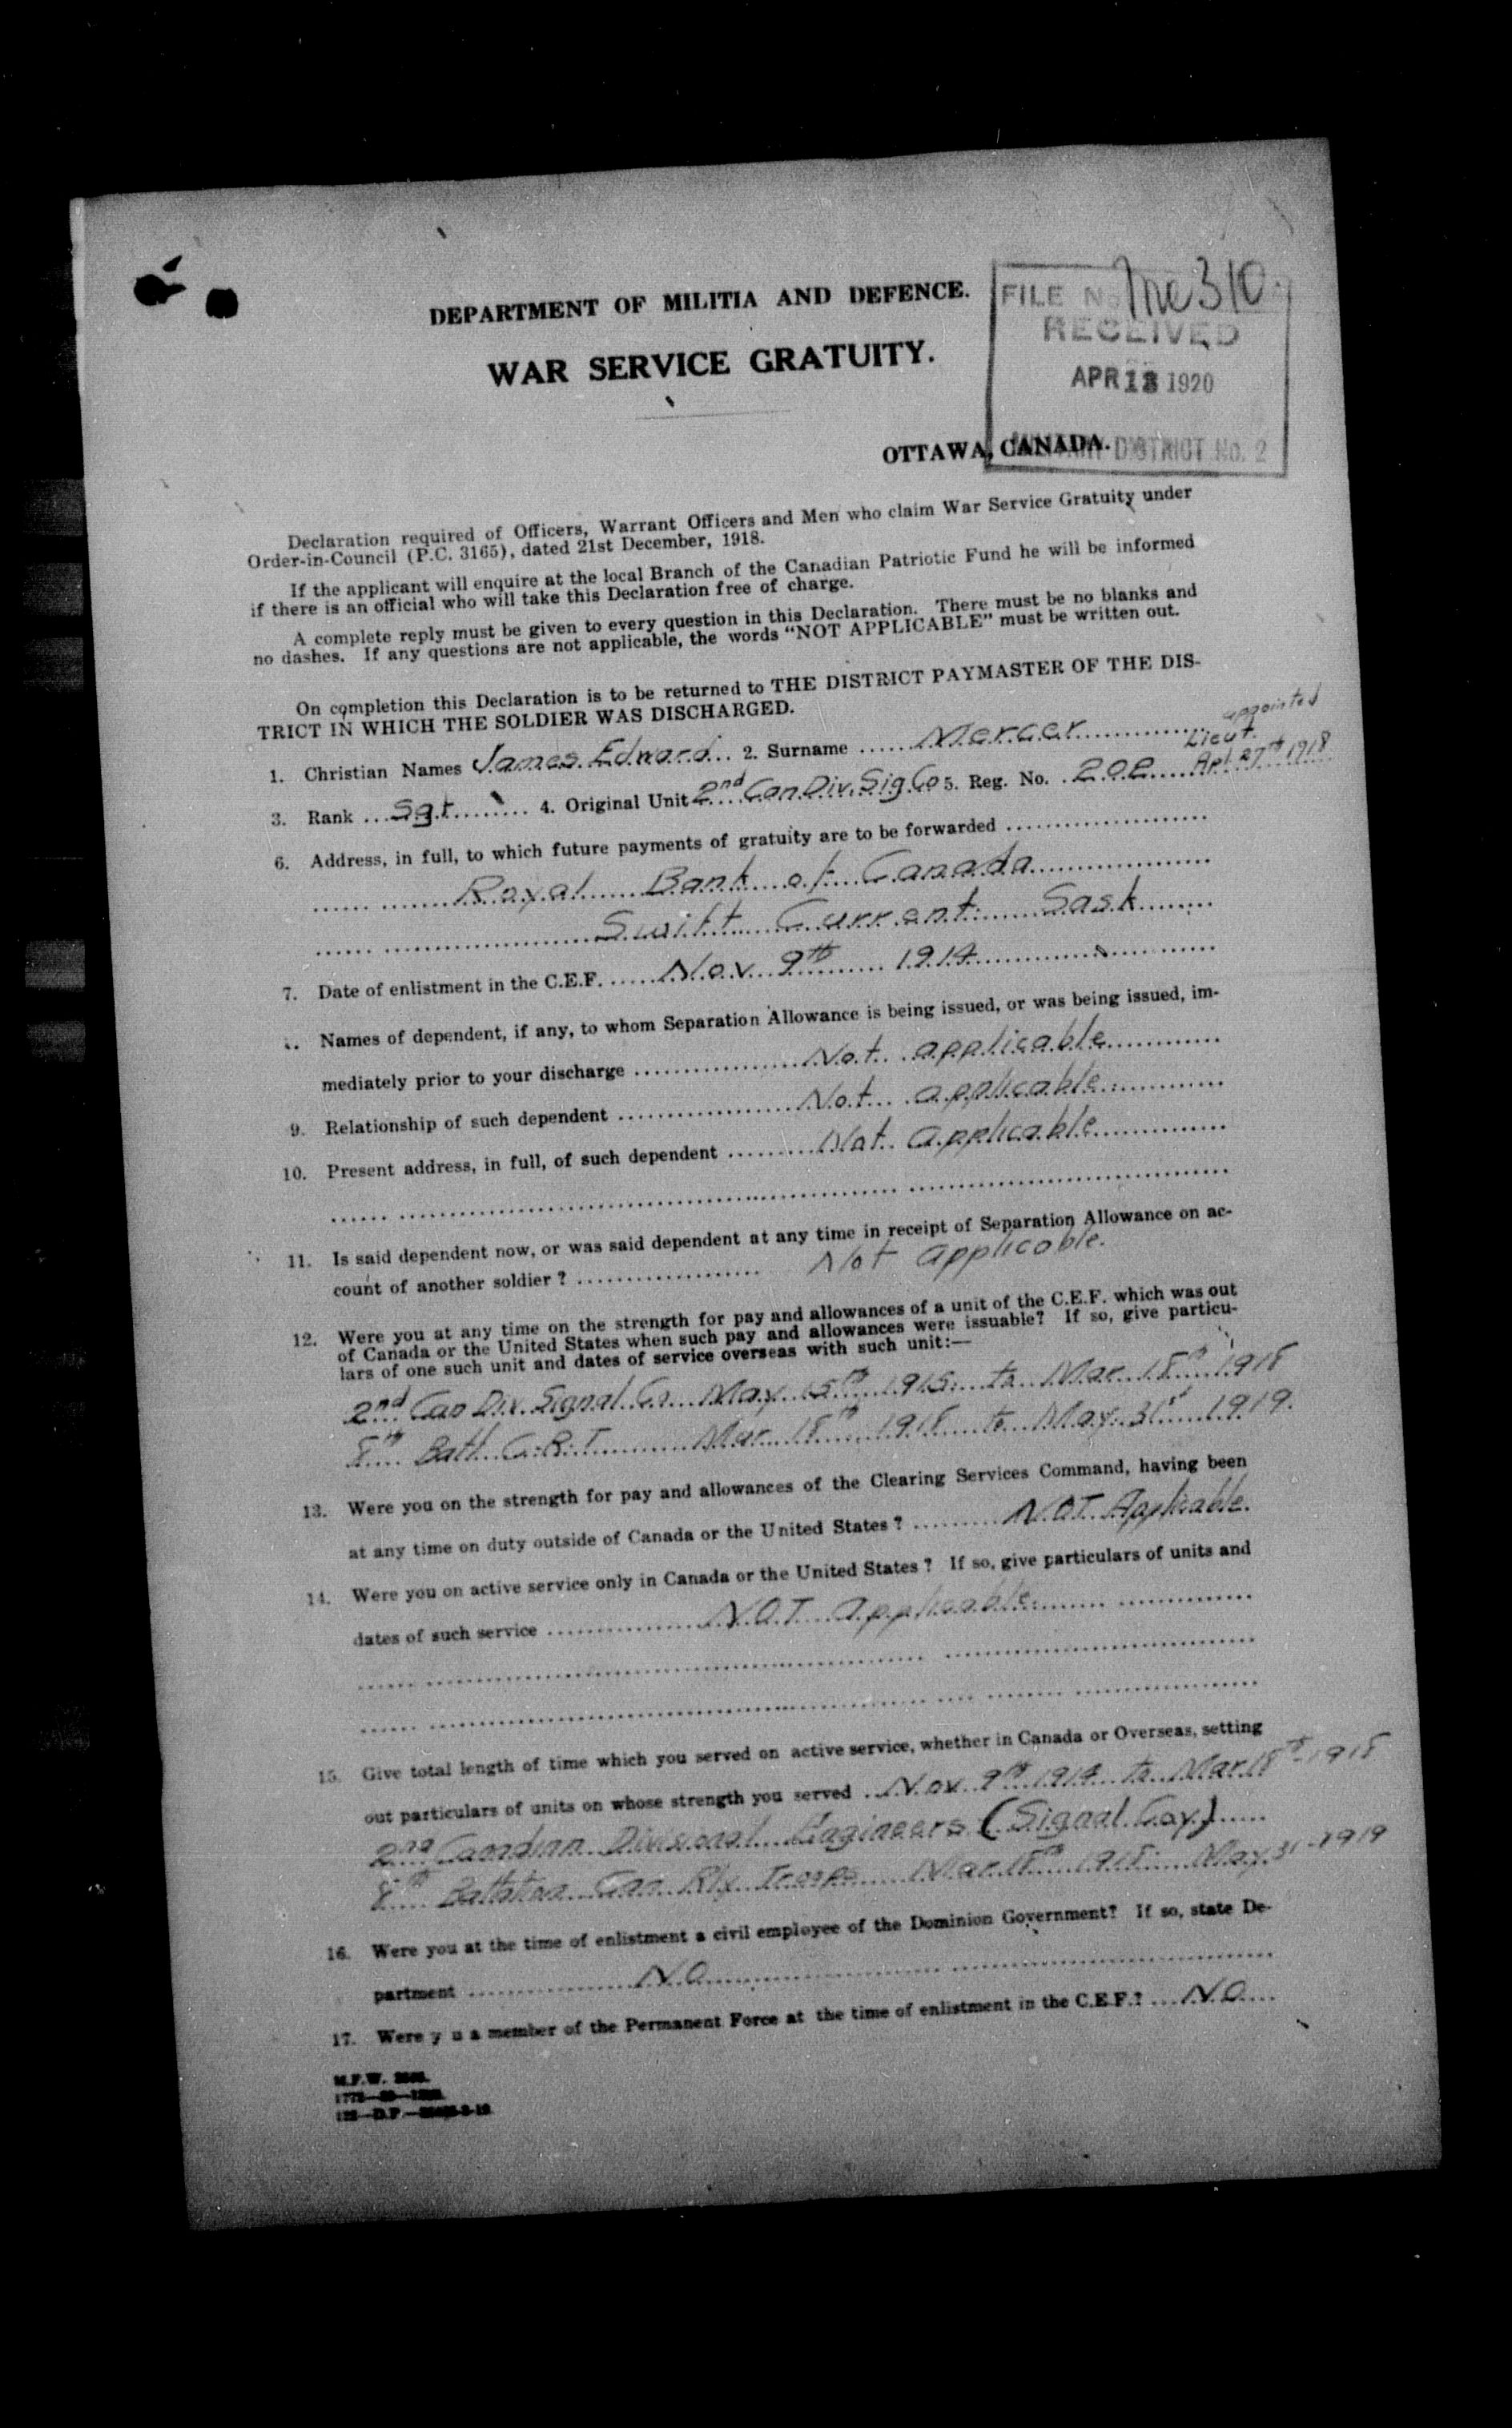 DEPARTMENT OF MILITIA AND DEFENCE.
WAR SERVICE GRATUITY.
FILE No Me 310
RECEIVED
APR 13 1920
MILITARY DISTRICT No. 2
OTTAWA, CANADA.
Declaration required of Officers, Warrant Officers and Men who claim War Service Gratuity under
Order-in-Council (P.C. 3165), dated 21st December, 1918.
If the applicant will enquire at the local Branch of the Canadian Patriotic Fund he will be informed
if there is an official who will take this Declaration free of charge.
A complete reply must be given to every question in this Declaration. There must be no blanks and
no dashes. If any questions are not applicable, the words "NOT APPLICABLE" must be written out.
On completion this Declaration is to be returned to THE DISTRICT PAYMASTER OF THE DIS-
TRICT IN WHICH THE SOLDIER WAS DISCHARGED.
1. Christian Names James Edward 2. Surname Mercer
appointed
Lieut.
Apl. 27th 1918
3. Rank Sgt 4. Original Unit 2nd Can Div. Sig Co 5. Reg. No. 202
6. Address, in full, to which future payments of gratuity are to be forwarded
Royal Bank of Canada
Swift Current Sask
7. Date of enlistment in the C.E.F. Nov 9th 1914
Names of dependent, if any, to whom Separation Allowance is being issued, or was being issued, im-
mediately prior to your discharge Not applicable
9. Relationship of such dependent Not applicable
10. Present address, in full, of such dependent Not applicable
11. Is said dependent now, or was said dependent at any time in receipt of Separation Allowance on ac-
count of another soldier? Not applicable.
12. Were you at any time on the strength for pay and allowances of a unit of the C.E.F. which was out
of Canada or the United States when such pay and allowances were issuable? If so, give particu-
lars of one such unit and dates of service overseas with such unit:—
2nd Can Div. Signal Co May 15th 1915 to Mar 18th 1918
8th Batt. C.R.T Mar 18th 1918 to May 31st 1919.
13. Were you on the strength for pay and allowances of the Clearing Services Command, having been
at any time on duty outside of Canada or the United States? NOT Applicable.
14. Were you on active service only in Canada or the United States? If so, give particulars of units and
dates of such service NOT applicable
15. Give total length of time which you served on active service, whether in Canada or Overseas, setting
out particulars of units on whose strength you served Nov 9th 1914 to Mar 18th 1918
2nd Canadian Divisional Engineers (Signal Coy)
8th Battalion Can Rly Troops Mar 18th 1918 May 31st 1919
16. Were you at the time of enlistment a civil employee of the Dominion Government? If so, state De-
partment NO
17. Were y u a member of the Permanent Force at the time of enlistment in the C.E.F.? NO
M.F.W.